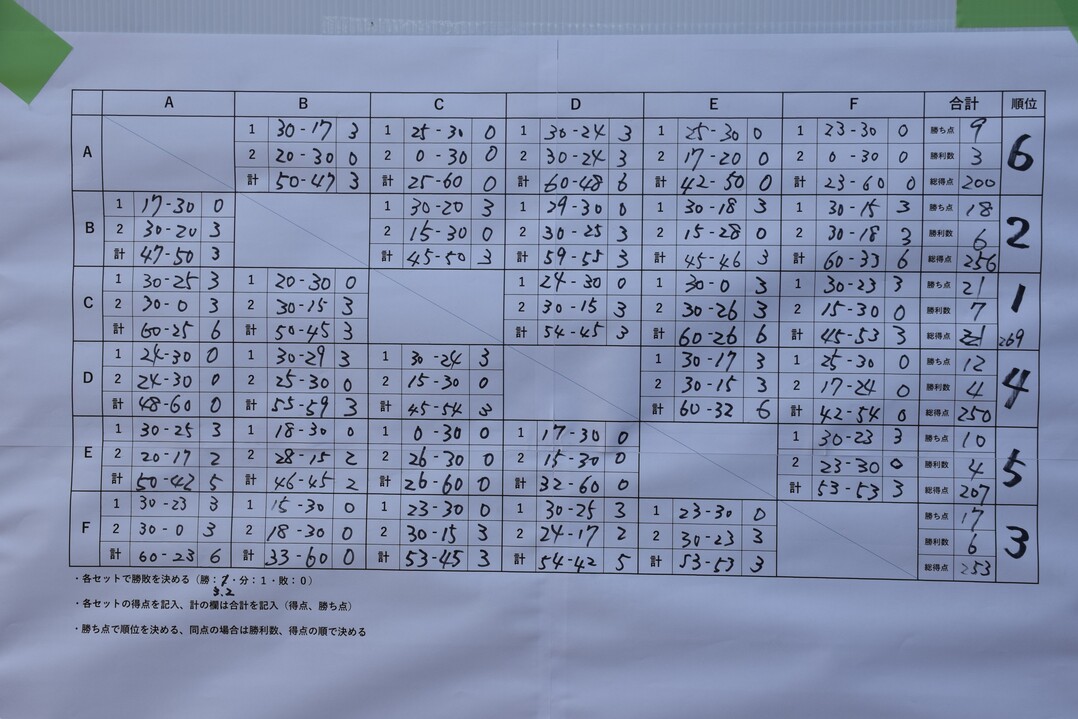 A B C D E F 合計 順位
A 1 30-17 3 1 25-30 0 1 30-24 3 1 25-30 0 1 23-30 0 勝ち点 9 6
2 20-30 0 2 0-30 0 2 30-24 3 2 17-20 0 2 0-30 0 勝利数 3
計 50-47 3 計 25-60 0 計 60-48 6 計 42-50 0 計 23-60 0 総得点 200
B 1 17-30 0 1 30-20 3 1 29-30 0 1 30-18 3 1 30-15 3 勝ち点 18 2
2 30-20 3 2 15-30 0 2 30-25 3 2 15-28 0 2 30-18 3 勝利数 6
計 47-50 3 計 45-50 3 計 59-55 3 計 45-46 3 計 60-33 6 総得点 256
C 1 30-25 3 1 20-30 0 1 24-30 0 1 30-0 3 1 30-23 3 勝ち点 21 1
2 30-0 3 2 30-15 3 2 30-15 3 2 30-26 3 2 15-30 0 勝利数 7
計 60-25 6 計 50-45 3 計 54-45 3 計 60-26 6 計 45-53 3 総得点 269
D 1 24-30 0 1 30-29 3 1 30-24 3 1 30-17 3 1 25-30 0 勝ち点 12 4
2 24-30 0 2 25-30 0 2 15-30 0 2 30-15 3 2 17-24 0 勝利数 4
計 48-60 0 計 55-59 3 計 45-54 3 計 60-32 6 計 42-54 0 総得点 250
E 1 30-25 3 1 18-30 0 1 0-30 0 1 17-30 0 1 30-23 3 勝ち点 10 5
2 20-17 2 2 28-15 2 2 26-30 0 2 15-30 0 2 23-30 0 勝利数 4
計 50-42 5 計 46-45 2 計 26-60 0 計 32-60 0 計 53-53 3 総得点 207
F 1 30-23 3 1 15-30 0 1 23-30 0 1 30-25 3 1 23-30 0 勝ち点 17 3
2 30-0 3 2 18-30 0 2 30-15 3 2 24-17 2 2 30-23 3 勝利数 6
計 60-23 6 計 33-60 0 計 53-45 3 計 54-42 5 計 53-53 3 総得点 253
・各セットで勝敗を決める（勝：・分：1・敗：0）
3.2
・各セットの得点を記入、計の欄は合計を記入（得点、勝ち点）
・勝ち点で順位を決める、同点の場合は勝利数、得点の順で決める